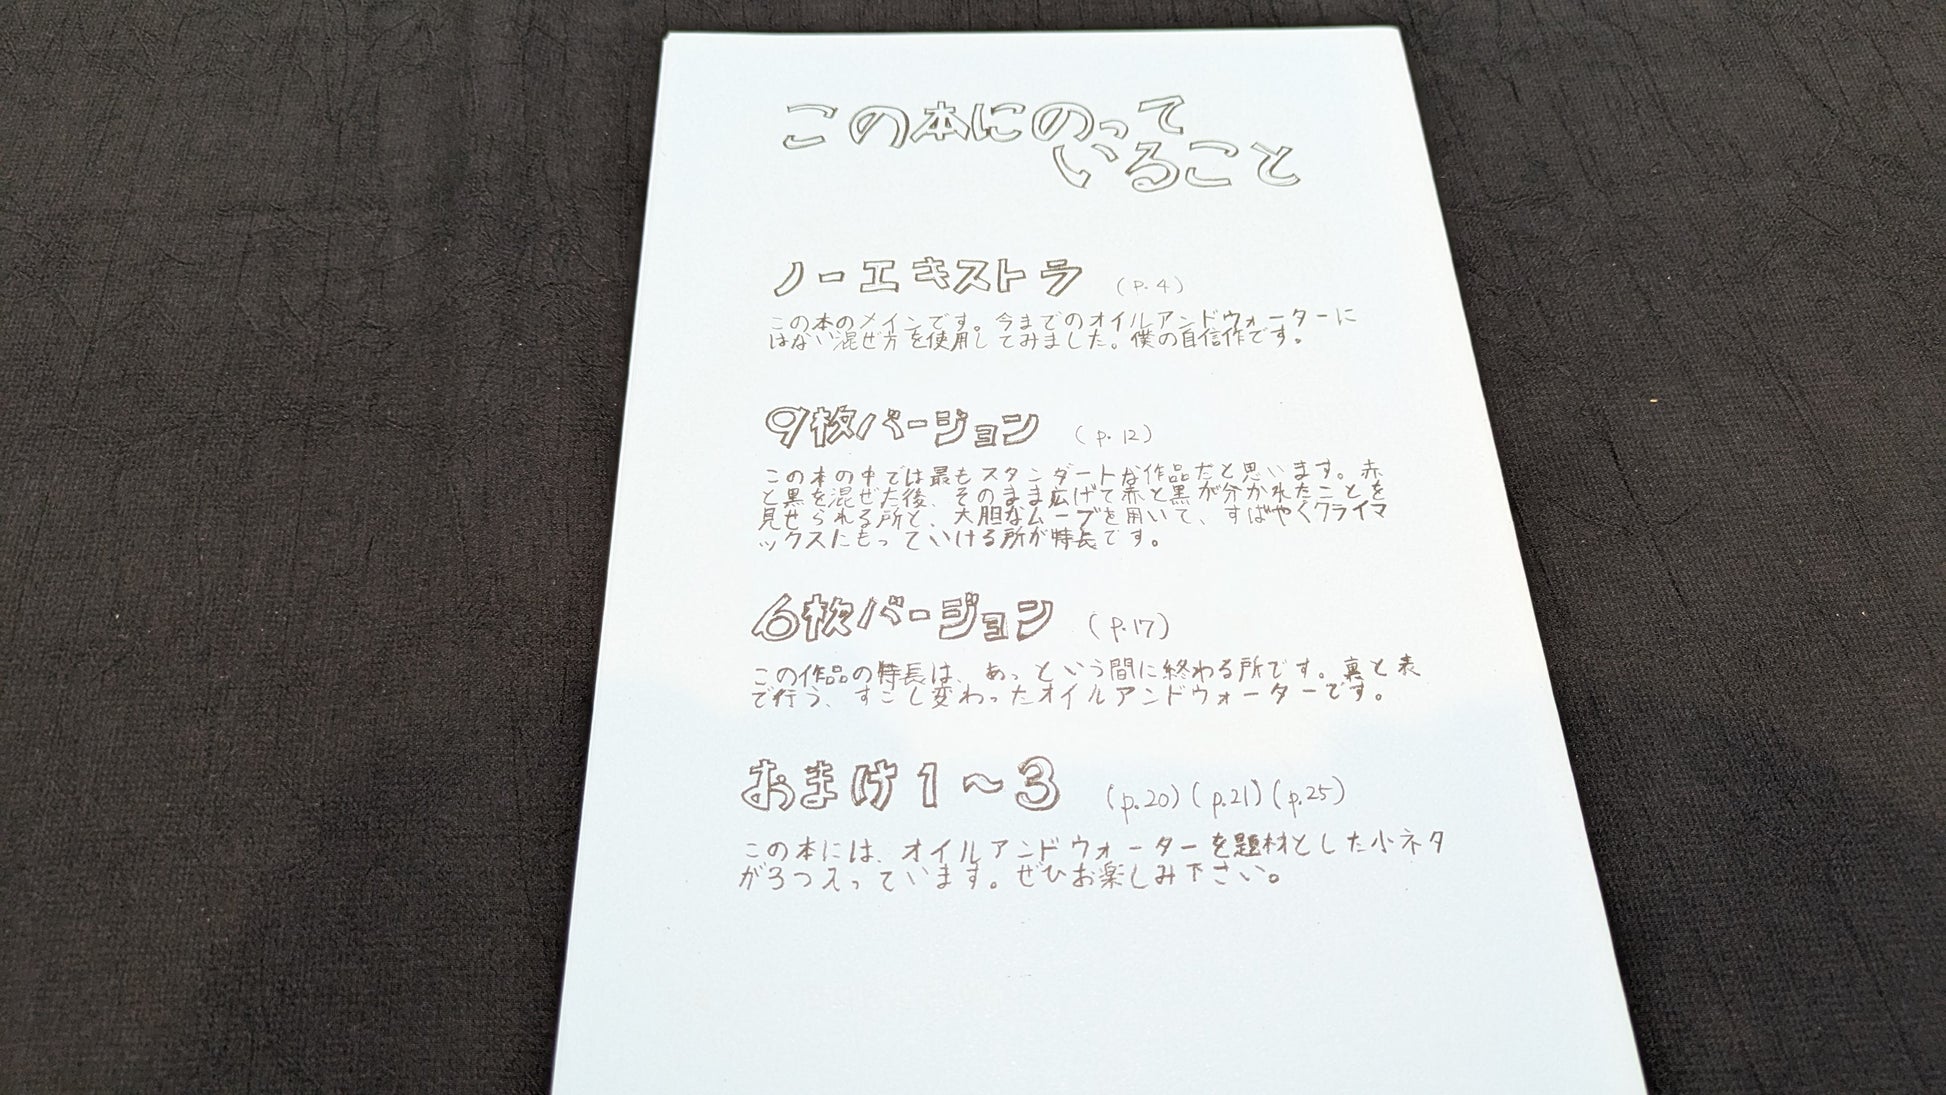 この本にのって
いること
ノーエキストラ (P.4)
この本のメインです。今までのオイルアンドウォーターに
はない混ぜ方を使用してみました。僕の自信作です。
9枚バージョン (p.12)
この本の中では最もスタンダートな作品だと思います。赤
と黒を混ぜた後、そのまま広げて赤と黒が分かれたことを
見せられる所と、大胆なムーブを用いて、すばやくクライマ
ックスにもっていける所が特長です。
6枚バージョン (p.17)
この作品の特長は、あっという間に終わる所です。裏と表
で行う、すこし変わったオイルアンドウォーターです。
おまけ1～3 (p.20)(p.21)(p.25)
この本には、オイルアンドウォーターを題材とした小ネタ
が3つ入っています。ぜひお楽しみ下さい。